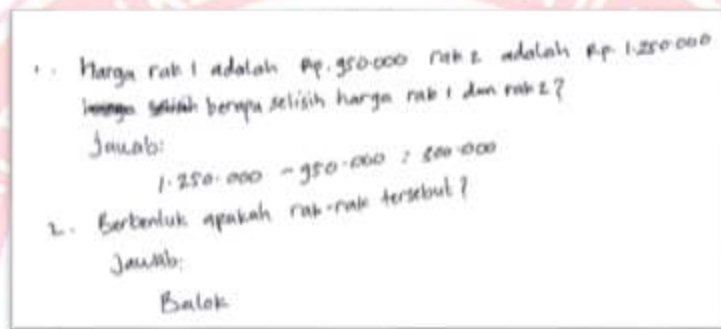 1. Harga rak 1 adalah Rp. 950.000 rak 2 adalah Rp. 1.250.000
berapa selisih harga rak 1 dan rak 2?
Jawab:
1.250.000 - 950.000 = 300.000
2. Berbentuk apakah rak-rak tersebut?
Jawab:
Balok